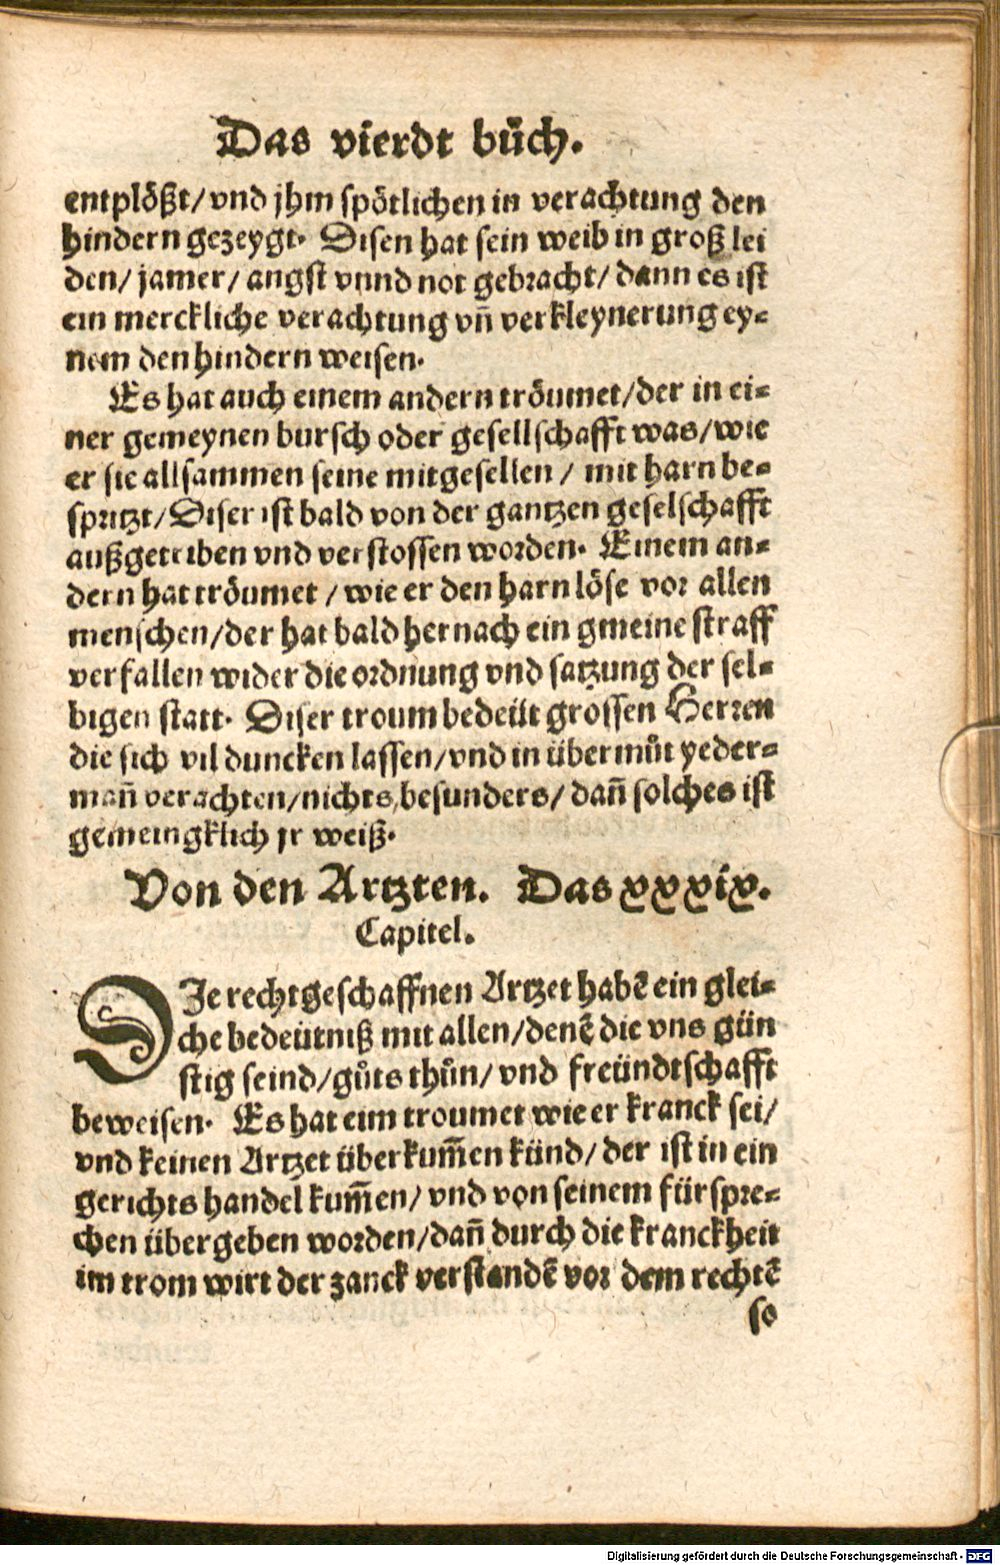 Das vierdt bůch.
entplößt/ vnd jhm spötlichen in verachtung den
hindern gezeygt. Disen hat sein weib in groß lei
den/ jamer/ angst vnnd not gebracht/ dann es ist
ein merckliche verachtung vñ verkleynerung ey⸗
nem den hindern weisen.
Es hat auch einem andern tröumet/der in ei⸗
ner gemeynen bursch oder gesellschafft was/wie
er sie allsammen seine mitgesellen / mit harn be⸗
spritzt/Diser ist bald von der gantzen geselschafft
außgetriben vnd verstossen worden. Einem an⸗
dern hat tröumet / wie er den harn löse vor allen
menschen/der hat bald hernach ein gmeine straff
verfallen wider die ordnung vnd satzung der sel⸗
bigen statt. Diser troum bedeüt grossen Herren
die sich vil duncken lassen/vnd in übermůt yeder⸗
mañ verachten/nichts besunders/ dañ solches ist
gemeingklich jr weiß.
Von den Artzten. Das xxxix.
Capitel.
DJe rechtgeschaffnen Artzet habẽ ein glei⸗
che bedeütniß mit allen/denẽ die vns gün
stig seind/gůts thůn/ vnd freündtschafft
beweisen. Es hat eim troumet wie er kranck sei/
vnd keinen Artzet überkum̃en künd/ der ist in ein
gerichts handel kum̃en/ vnd von seinem fürspre⸗
chen übergeben worden/dañ durch die kranckheit
im trom wirt der zanck verstandẽ vor dem rechtẽ
so
Digitalisierung gefördert durch die Deutsche Forschungsgemeinschaft - DFG